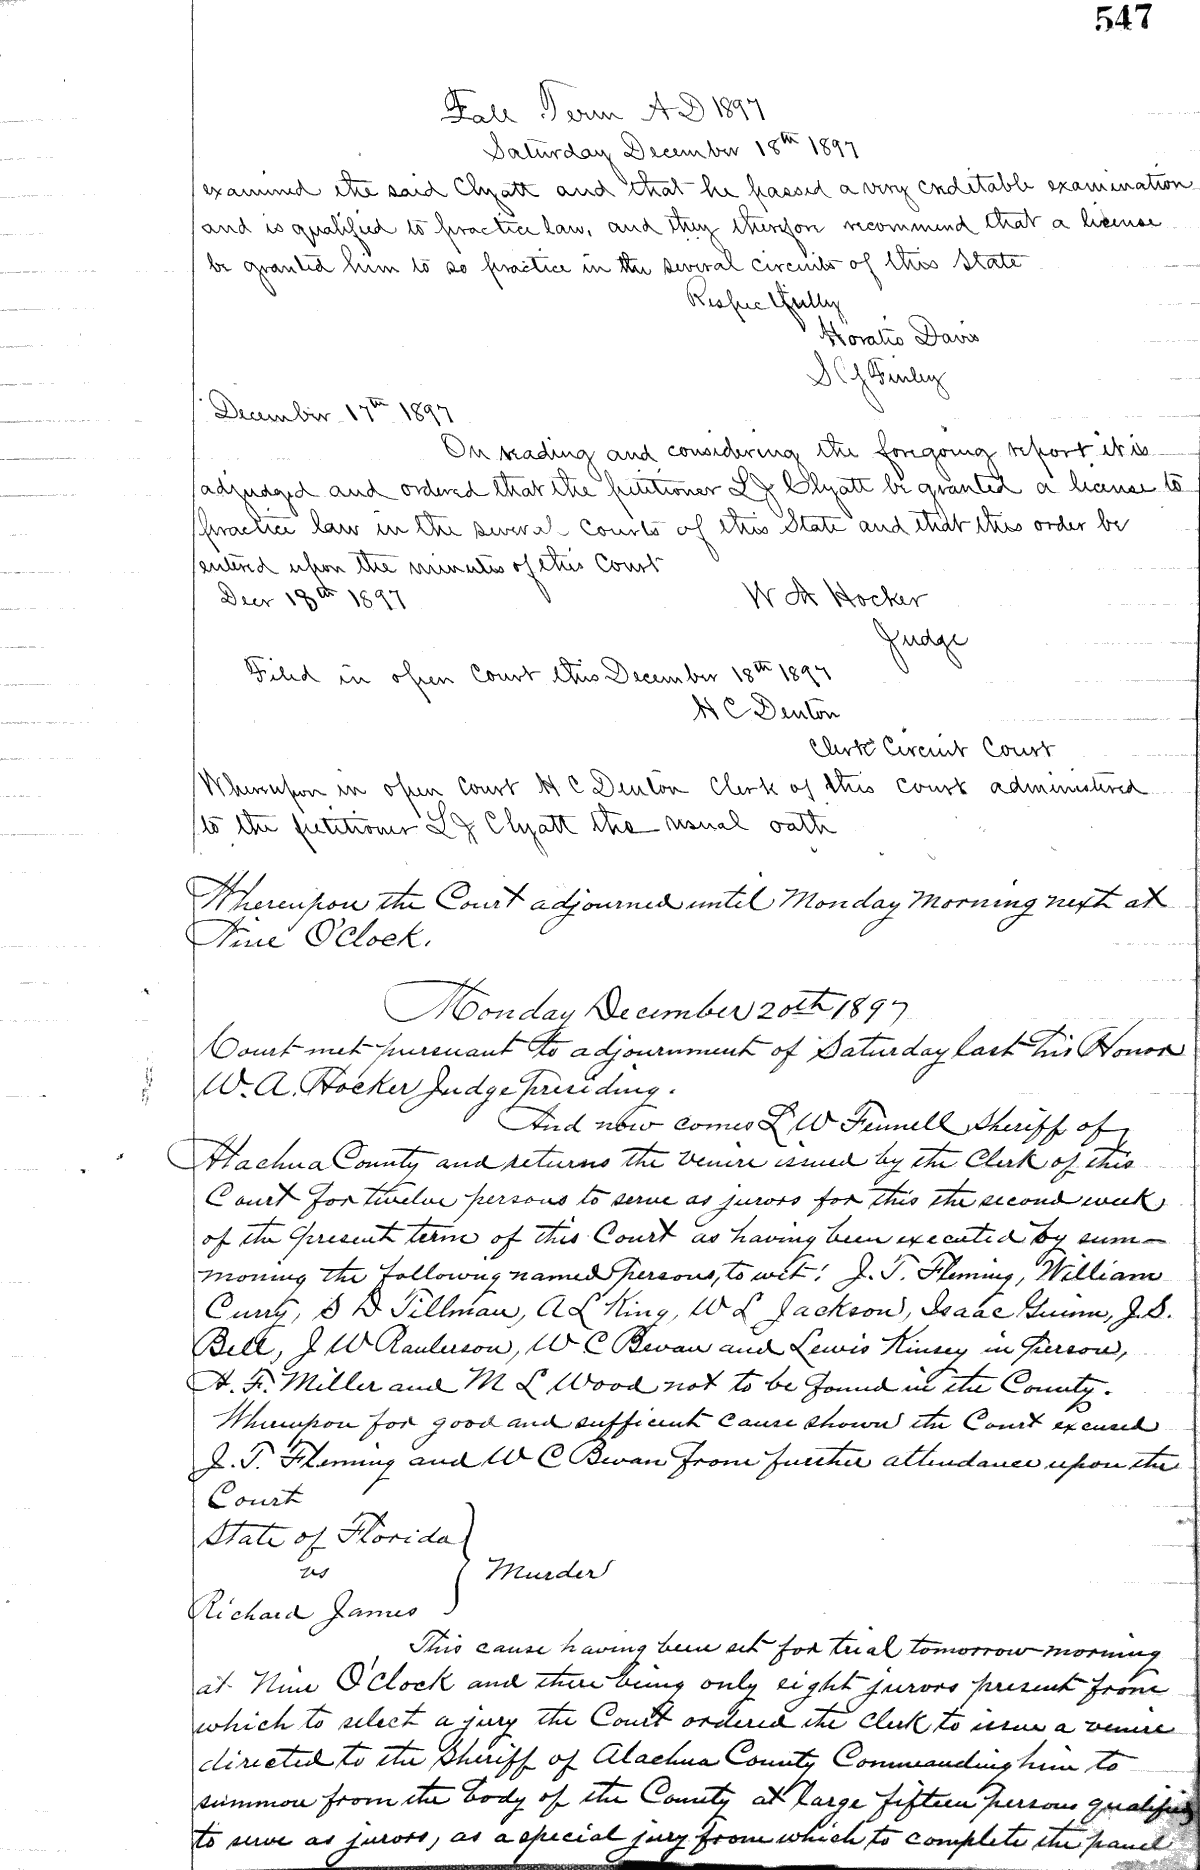 547
Fall Term A D 1897
Saturday December 18th 1897
examined the said Clyatt and that he passed a very creditable examination
and is qualified to practice law, and they therefore recommend that a license
be granted him to so practice in the several circuits of this State
Respectfully
Horatio Davis
Finley
December 17th 1897
On reading and considering the foregoing report it is
adjudged and ordered that the petitioner L J Clyatt be granted a license to
practice law in the several courts of this State and that this order be
entered upon the minutes of this Court
Decr 18th 1897
W A Hocker
Judge
Filed in open Court this December 18th 1897
H C Denton
Clerk Circuit Court
Whereupon in open Court H C Denton Clerk of this court administered
to the petitioner L J Clyatt the usual oath
Whereupon the Court adjourned until Monday Morning next at
Nine O'Clock.
Monday December 20th 1897
Court met pursuant to adjournment of Saturday last His Honor
W. A. Hocker Judge presiding.
And now comes L W Fennell Sheriff of
Alachua County and returns the venire issued by the Clerk of this
Court for twelve persons to serve as jurors for this the second week
of the present term of this Court as having been executed by sum-
moning the following named persons, to wit: J. T. Fleming, William
Curry, S D Tillman, A L King, W L Jackson, Isaac Guinn, J. S.
Bell, J W Raulerson, W C Bevan and Lewis Kinsey in person,
A. F. Miller and M L Wood not to be found in the County.
Whereupon for good and sufficient cause shown the Court excused
J. T. Fleming and W C Bevan from further attendance upon the
Court
State of Florida
vs
Murder
Richard James
This cause having been set for trial tomorrow morning
at Nine O'Clock and there being only eight jurors present from
which to select a jury the Court ordered the Clerk to issue a venire
directed to the Sheriff of Alachua County Commanding him to
summon from the body of the County at large fifteen persons qualified
to serve as jurors, as a special jury from which to complete the panel